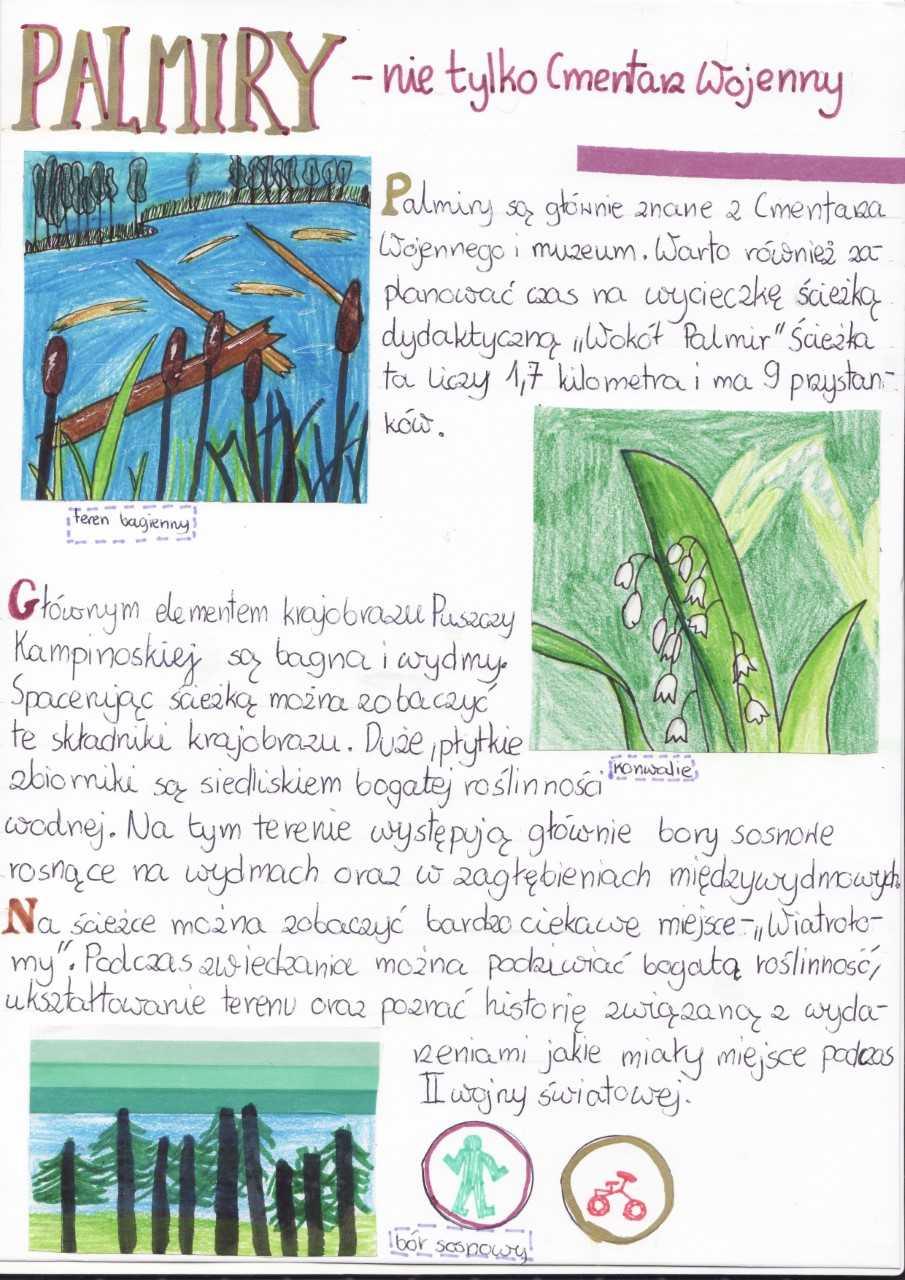 PALMIRY - nie tylko Cmentarz Wojenny
Palmiry są głównie znane z Cmentarza
Wojennego i muzeum. Warto również za-
planować czas na wycieczkę ścieżką
dydaktyczną „Wokół Palmir” Ścieżka
ta liczy 1,7 kilometra i ma 9 przystan-
ków.
teren bagienny
konwalie
Głównym elementem krajobrazu Puszczy
Kampinoskiej są bagna i wydmy.
Spacerując ścieżką można zobaczyć
te składniki krajobrazu. Duże, płytkie
zbiorniki są siedliskiem bogatej roślinności
wodnej. Na tym terenie występują głównie bory sosnowe
rosnące na wydmach oraz w zagłębieniach międzywydmowych.
Na ścieżce można zobaczyć bardzo ciekawe miejsce-„Wiatroło-
my”. Podczas zwiedzania można podziwiać bogatą roślinność,
ukształtowanie terenu oraz poznać historię związaną z wyda-
rzeniami jakie miały miejsce podczas
II wojny światowej.
bór sosnowy